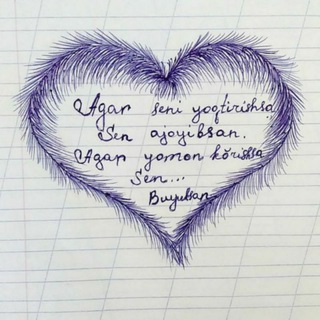 Agar seni yoqtirishsa
Sen ajoyibsan.
Agar yomon kŏrishsa
Sen...
Buyuksan